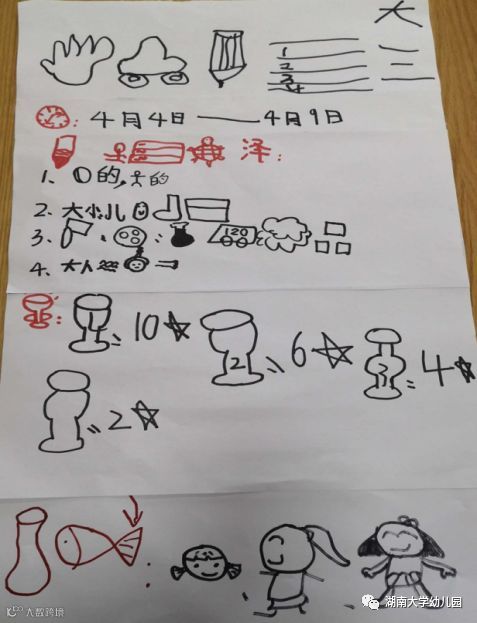 大
三
1
2
3
4
4月4日——4月9日
泽:
1、的,的
2、大小儿
3、120
4、大人
10
2 6
3 4
2
大数跨境
湖南大学幼儿园